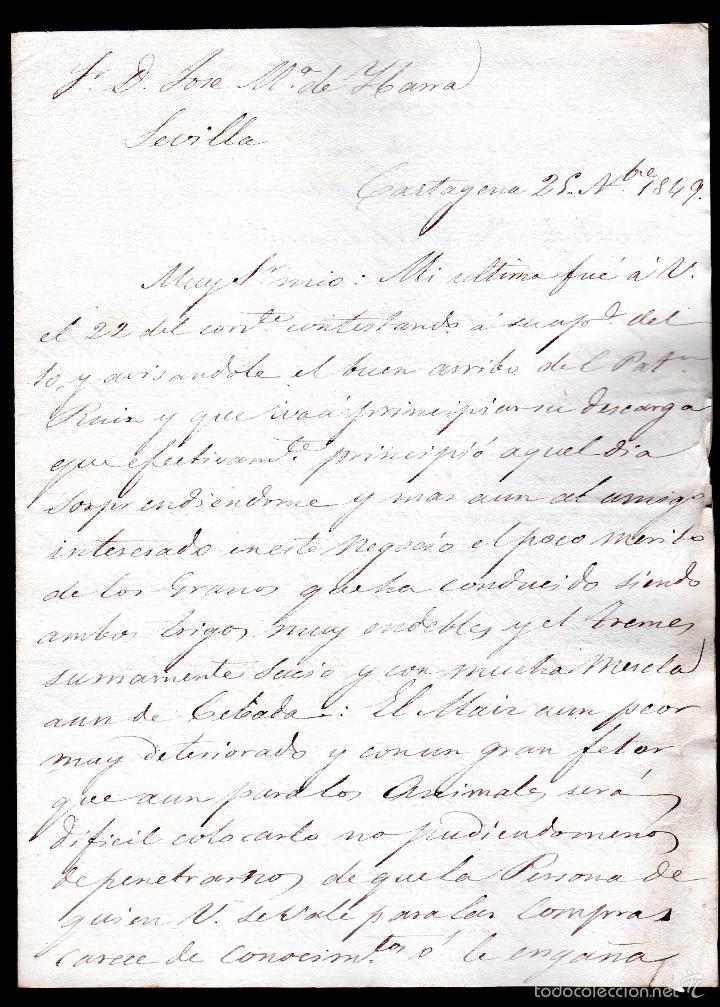 Sr. D. José Mª de Ybarra
Sevilla
Cartagena 25. Nbre. 1849.
Muy Sr. mio: Mi ultima fué á V.
el 22 del corrte. contestando á su apda. del
10, y avisandole el buen arribo del Patn.
Ruiz y que ivaá principiar su descarga
que efectivamte. principió aquel dia
sorprendiendome y mas aun al amigo
interesado en este Negocio el poco merito
de los Granos que ha conducido siendo
ambos trigos muy endebles y el Tremes
sumamente Sucio y con mucha Mescla
aun de Cebada: El Maiz aun peor
muy deteriorado y con un gran fetor
que aun para los Animales será
dificil colocarlo no pudiendo menos
de penetrarnos de que la Persona de
quien V. se vale para las Compras
carece de Conocimtos. ó le engaña
© todocoleccion.net